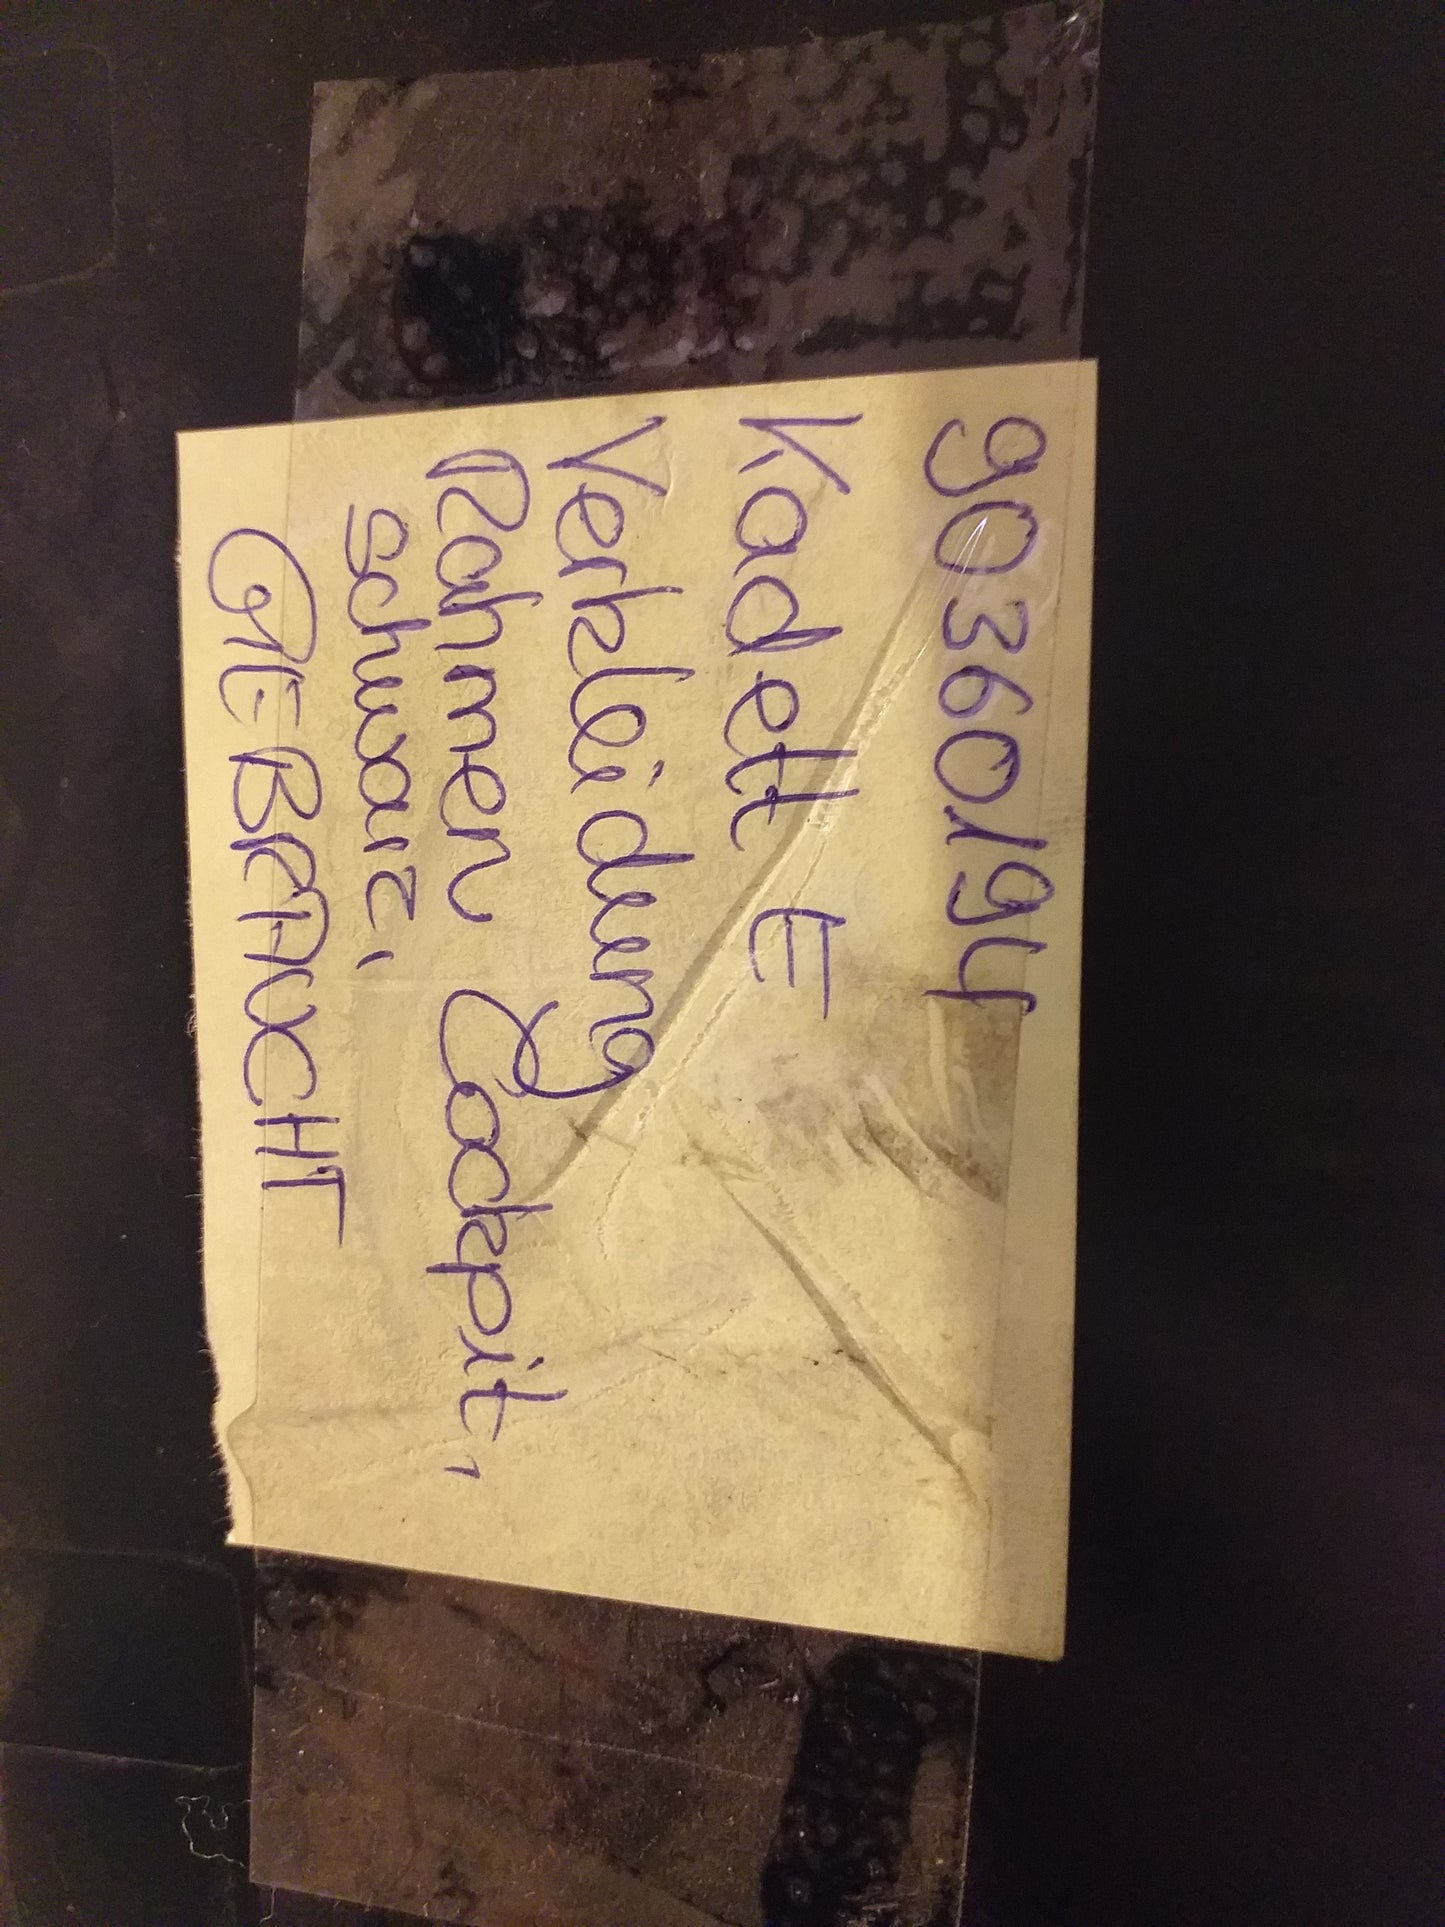 90360194
Kadett E
Verkleidung
Rahmen Cockpit,
schwarz,
GEBRAUCHT